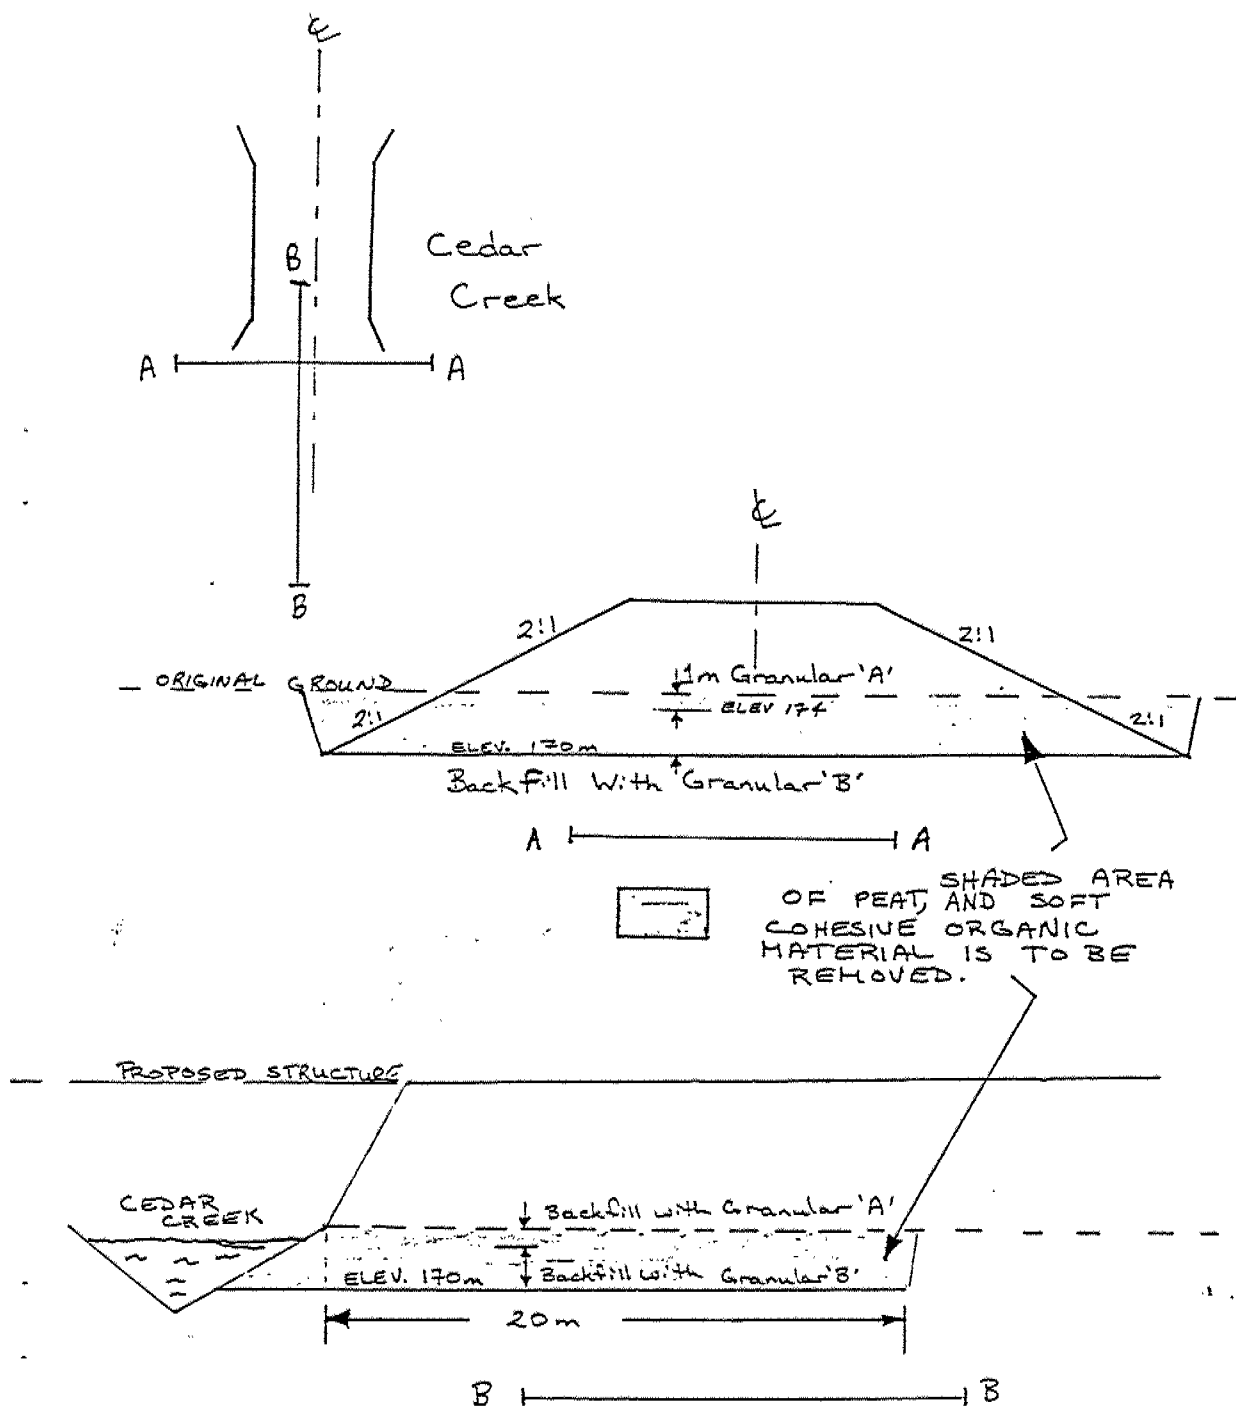 ℄
B
Cedar
Creek
A A
B
℄
2:1 2:1
1m Granular 'A'
ORIGINAL GROUND
ELEV 174
2:1 2:1
ELEV. 170m
Backfill With Granular 'B'
A A
SHADED AREA
OF PEAT, AND SOFT
COHESIVE ORGANIC
MATERIAL IS TO BE
REMOVED.
PROPOSED STRUCTURE
CEDAR
CREEK
Backfill with Granular 'A'
ELEV. 170m Backfill with Granular 'B'
20m
B B